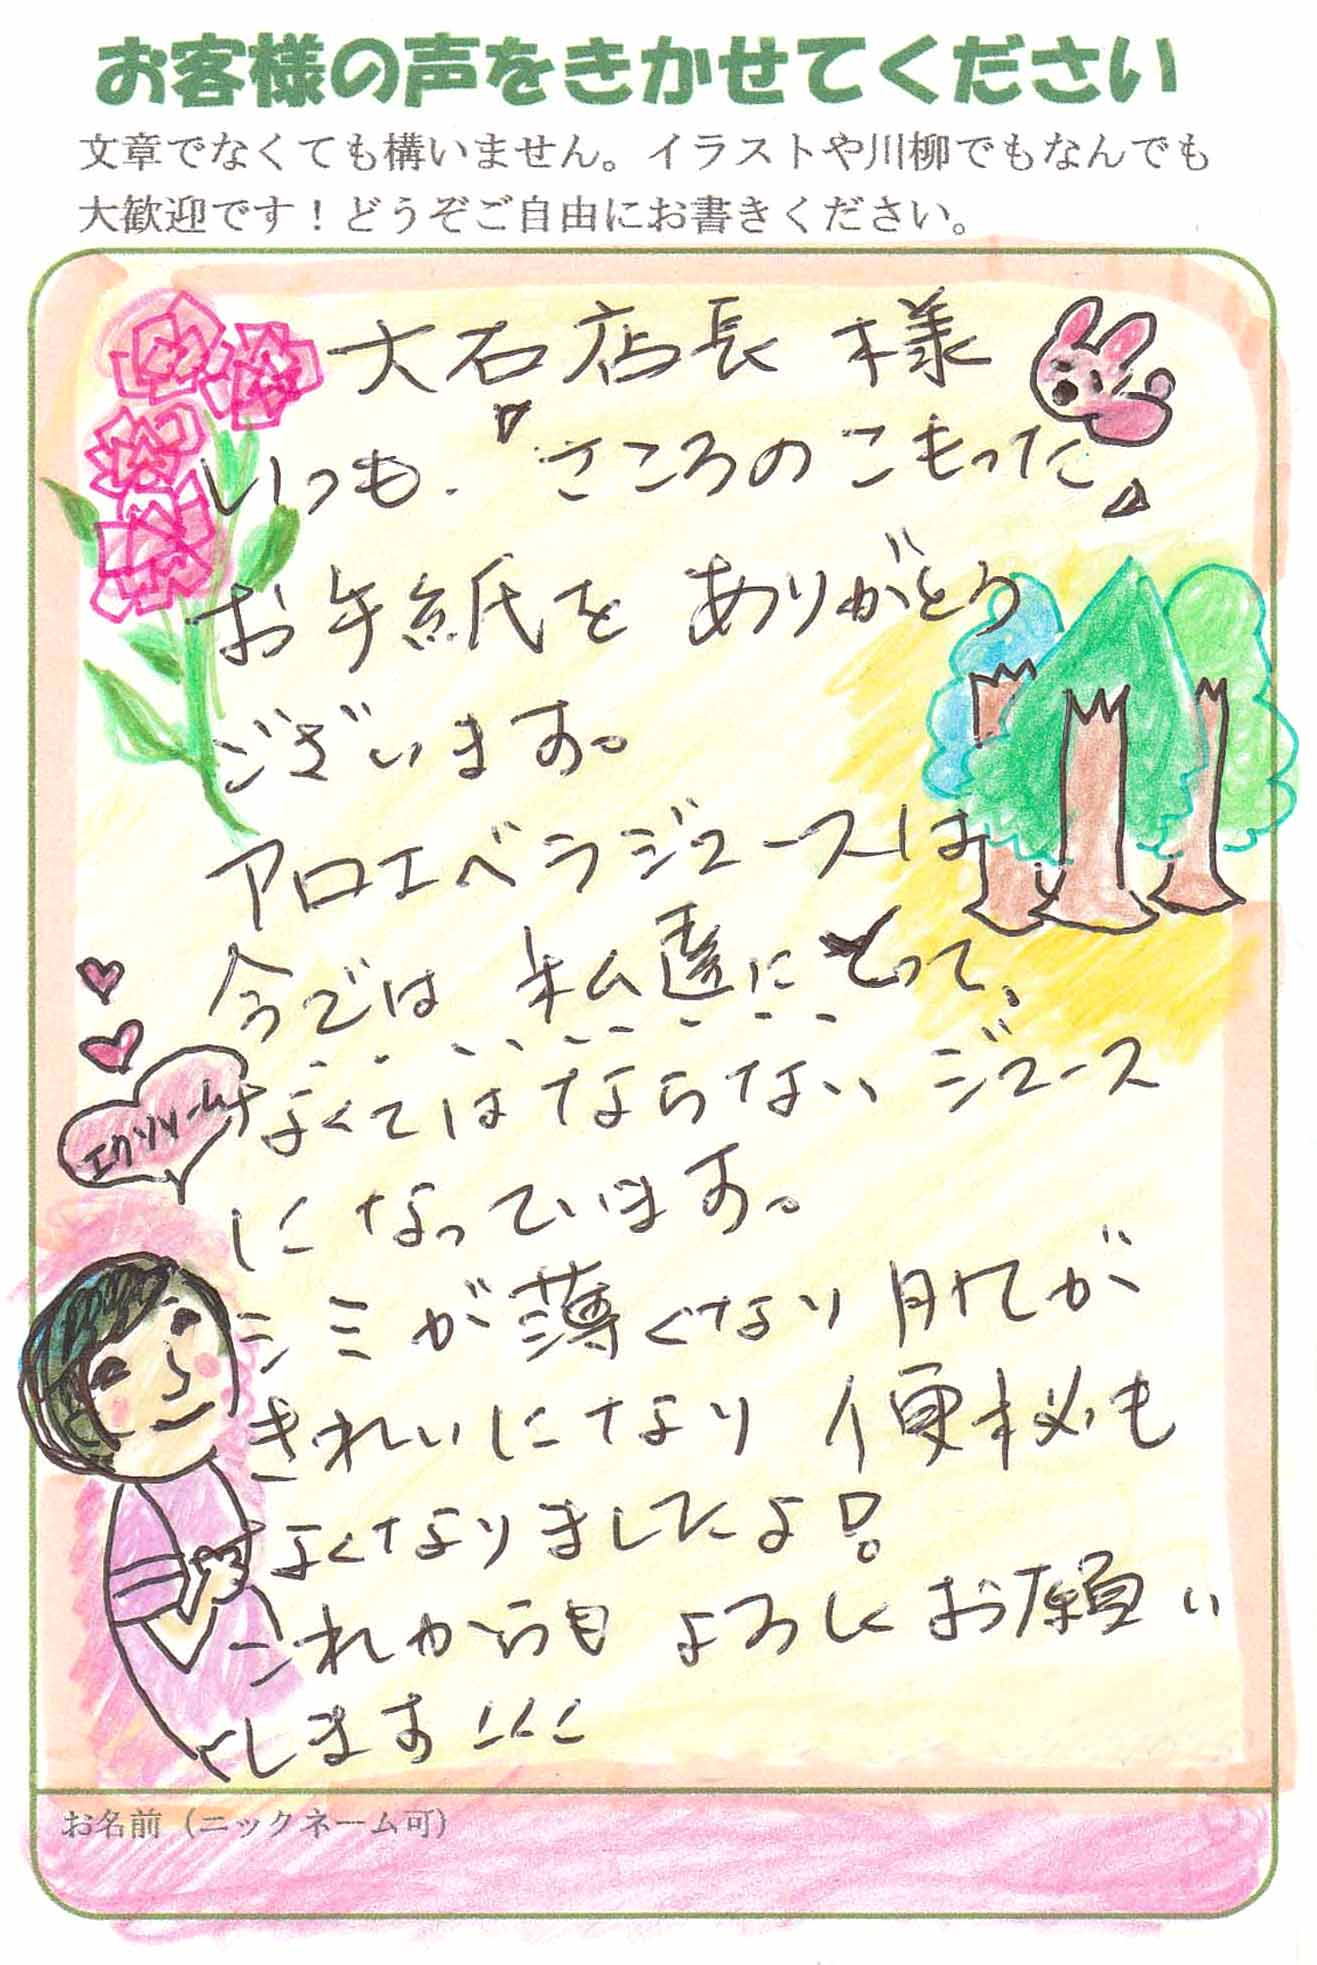 お客様の声をきかせてください
文章でなくても構いません。イラストや川柳でもなんでも
大歓迎です！どうぞご自由にお書きください。
大石店長様
いつも、「こころのこもった」
お手紙をありがとう
ございます。
アロエベラジュースは
今では私達にとって、
なくてはならないジュース
になっています。
エクソリーム
シミが薄くなり肌が
きれいになり便秘も
なくなりましたよ!。
これからもよろしくお願い
します!!!
お名前（ニックネーム可）